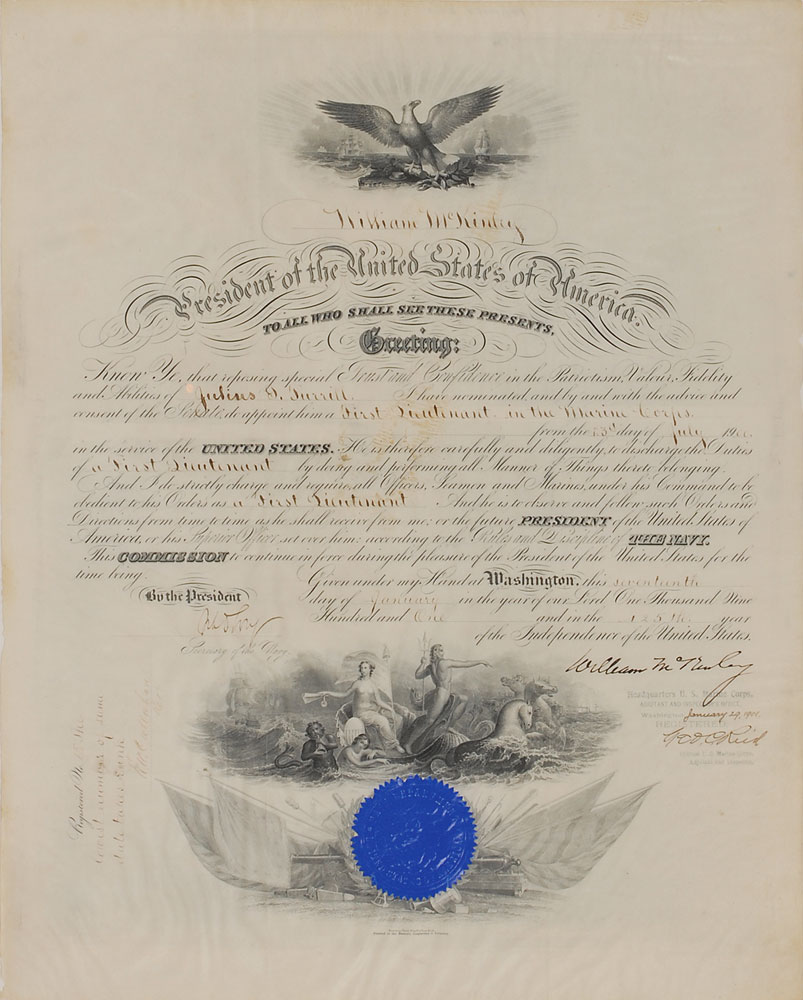 William McKinley
President of the United States of America.
TO ALL WHO SHALL SEE THESE PRESENTS,
Greeting:
Know Ye, that reposing special Trust and Confidence in the Patriotism, Valour, Fidelity
and Abilities of Julius S. Turrill I have nominated, and by and with the advice and
consent of the Senate, do appoint him a First Lieutenant in the Marine Corps
from the 23d day of July 1900.
in the service of the UNITED STATES. He is therefore carefully and diligently, to discharge the Duties
of a First Lieutenant by doing and performing all Manner of Things thereto belonging.
And I do strictly charge and require, all Officers, Seamen and Marines, under his Command to be
obedient to his Orders as a First Lieutenant And he is to observe and follow such Orders and
Directions from time to time as he shall receive from me; or the future PRESIDENT of the United States of
America, or his Superior Officer set over him; according to the Rules and Discipline of THE NAVY.
This COMMISSION to continue in force during the pleasure of the President of the United States for the
time being.
Given under my Hand at Washington, this seventeenth
By the President
day of January in the year of our Lord One Thousand Nine
Hundred and One and in the 125th year
of the Independence of the United States.
Secretary of the Navy
William McKinley
Headquarters U. S. Marine Corps,
ADJUTANT AND INSPECTOR'S OFFICE,
January 29, 1901
REGISTERED
U. S. Marine Corps,
Adjutant and Inspector.
Registered No.